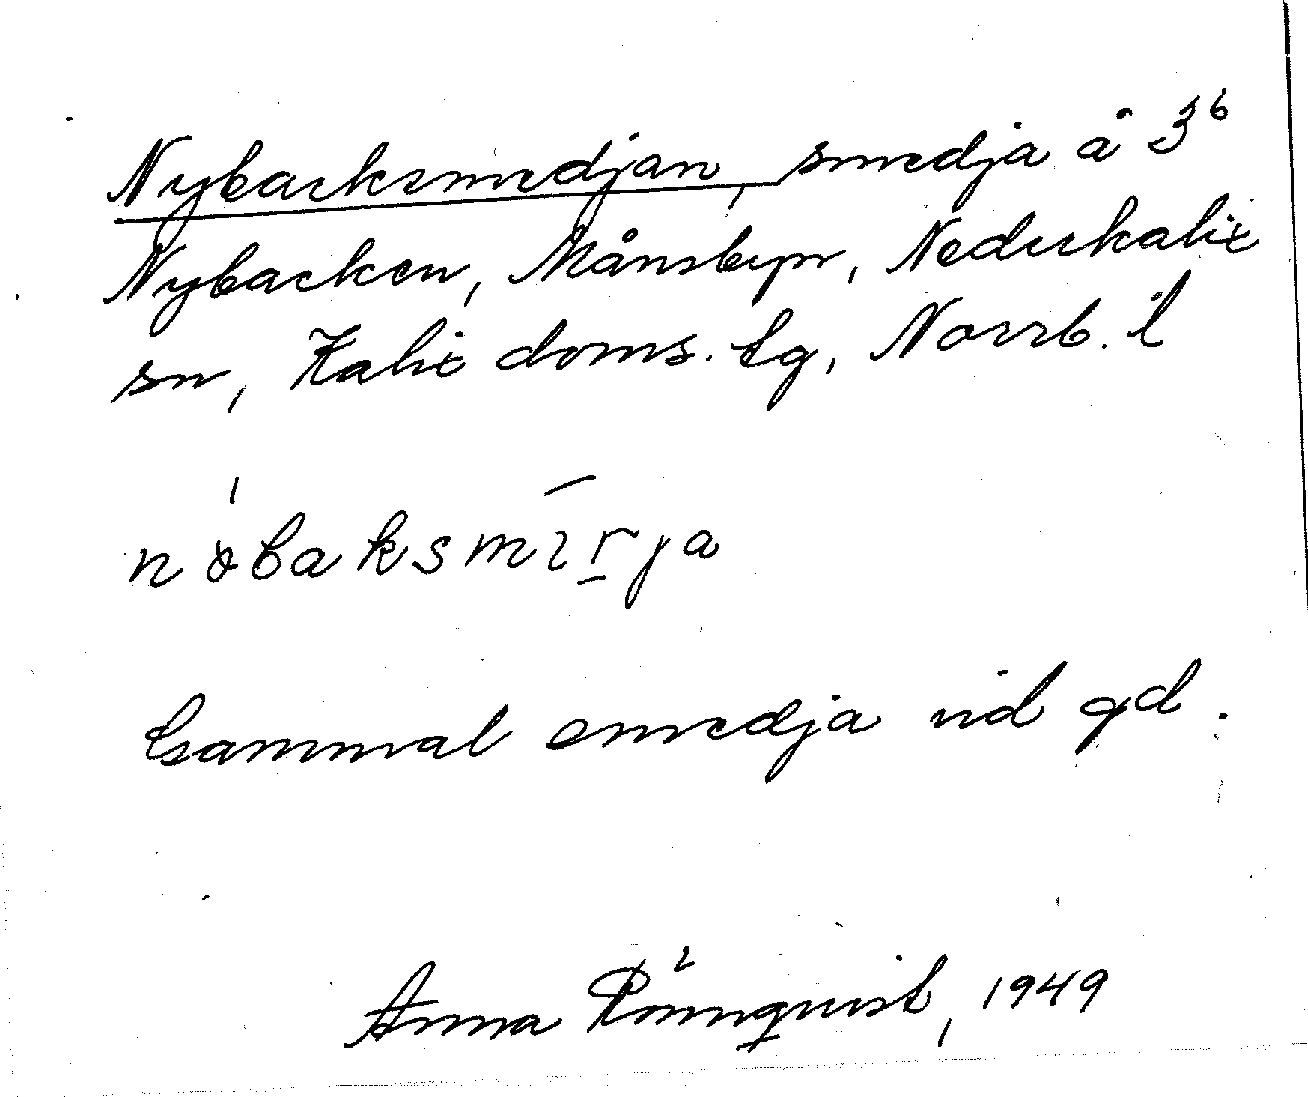 Nybacksmedjan, smedja å 3⁶
Nybacken, Månsbyn, Nederkalix
sn, Kalix doms. lg, Norrb. l
Gammal smedja vid gd.
Anna Rönnqvist, 1949